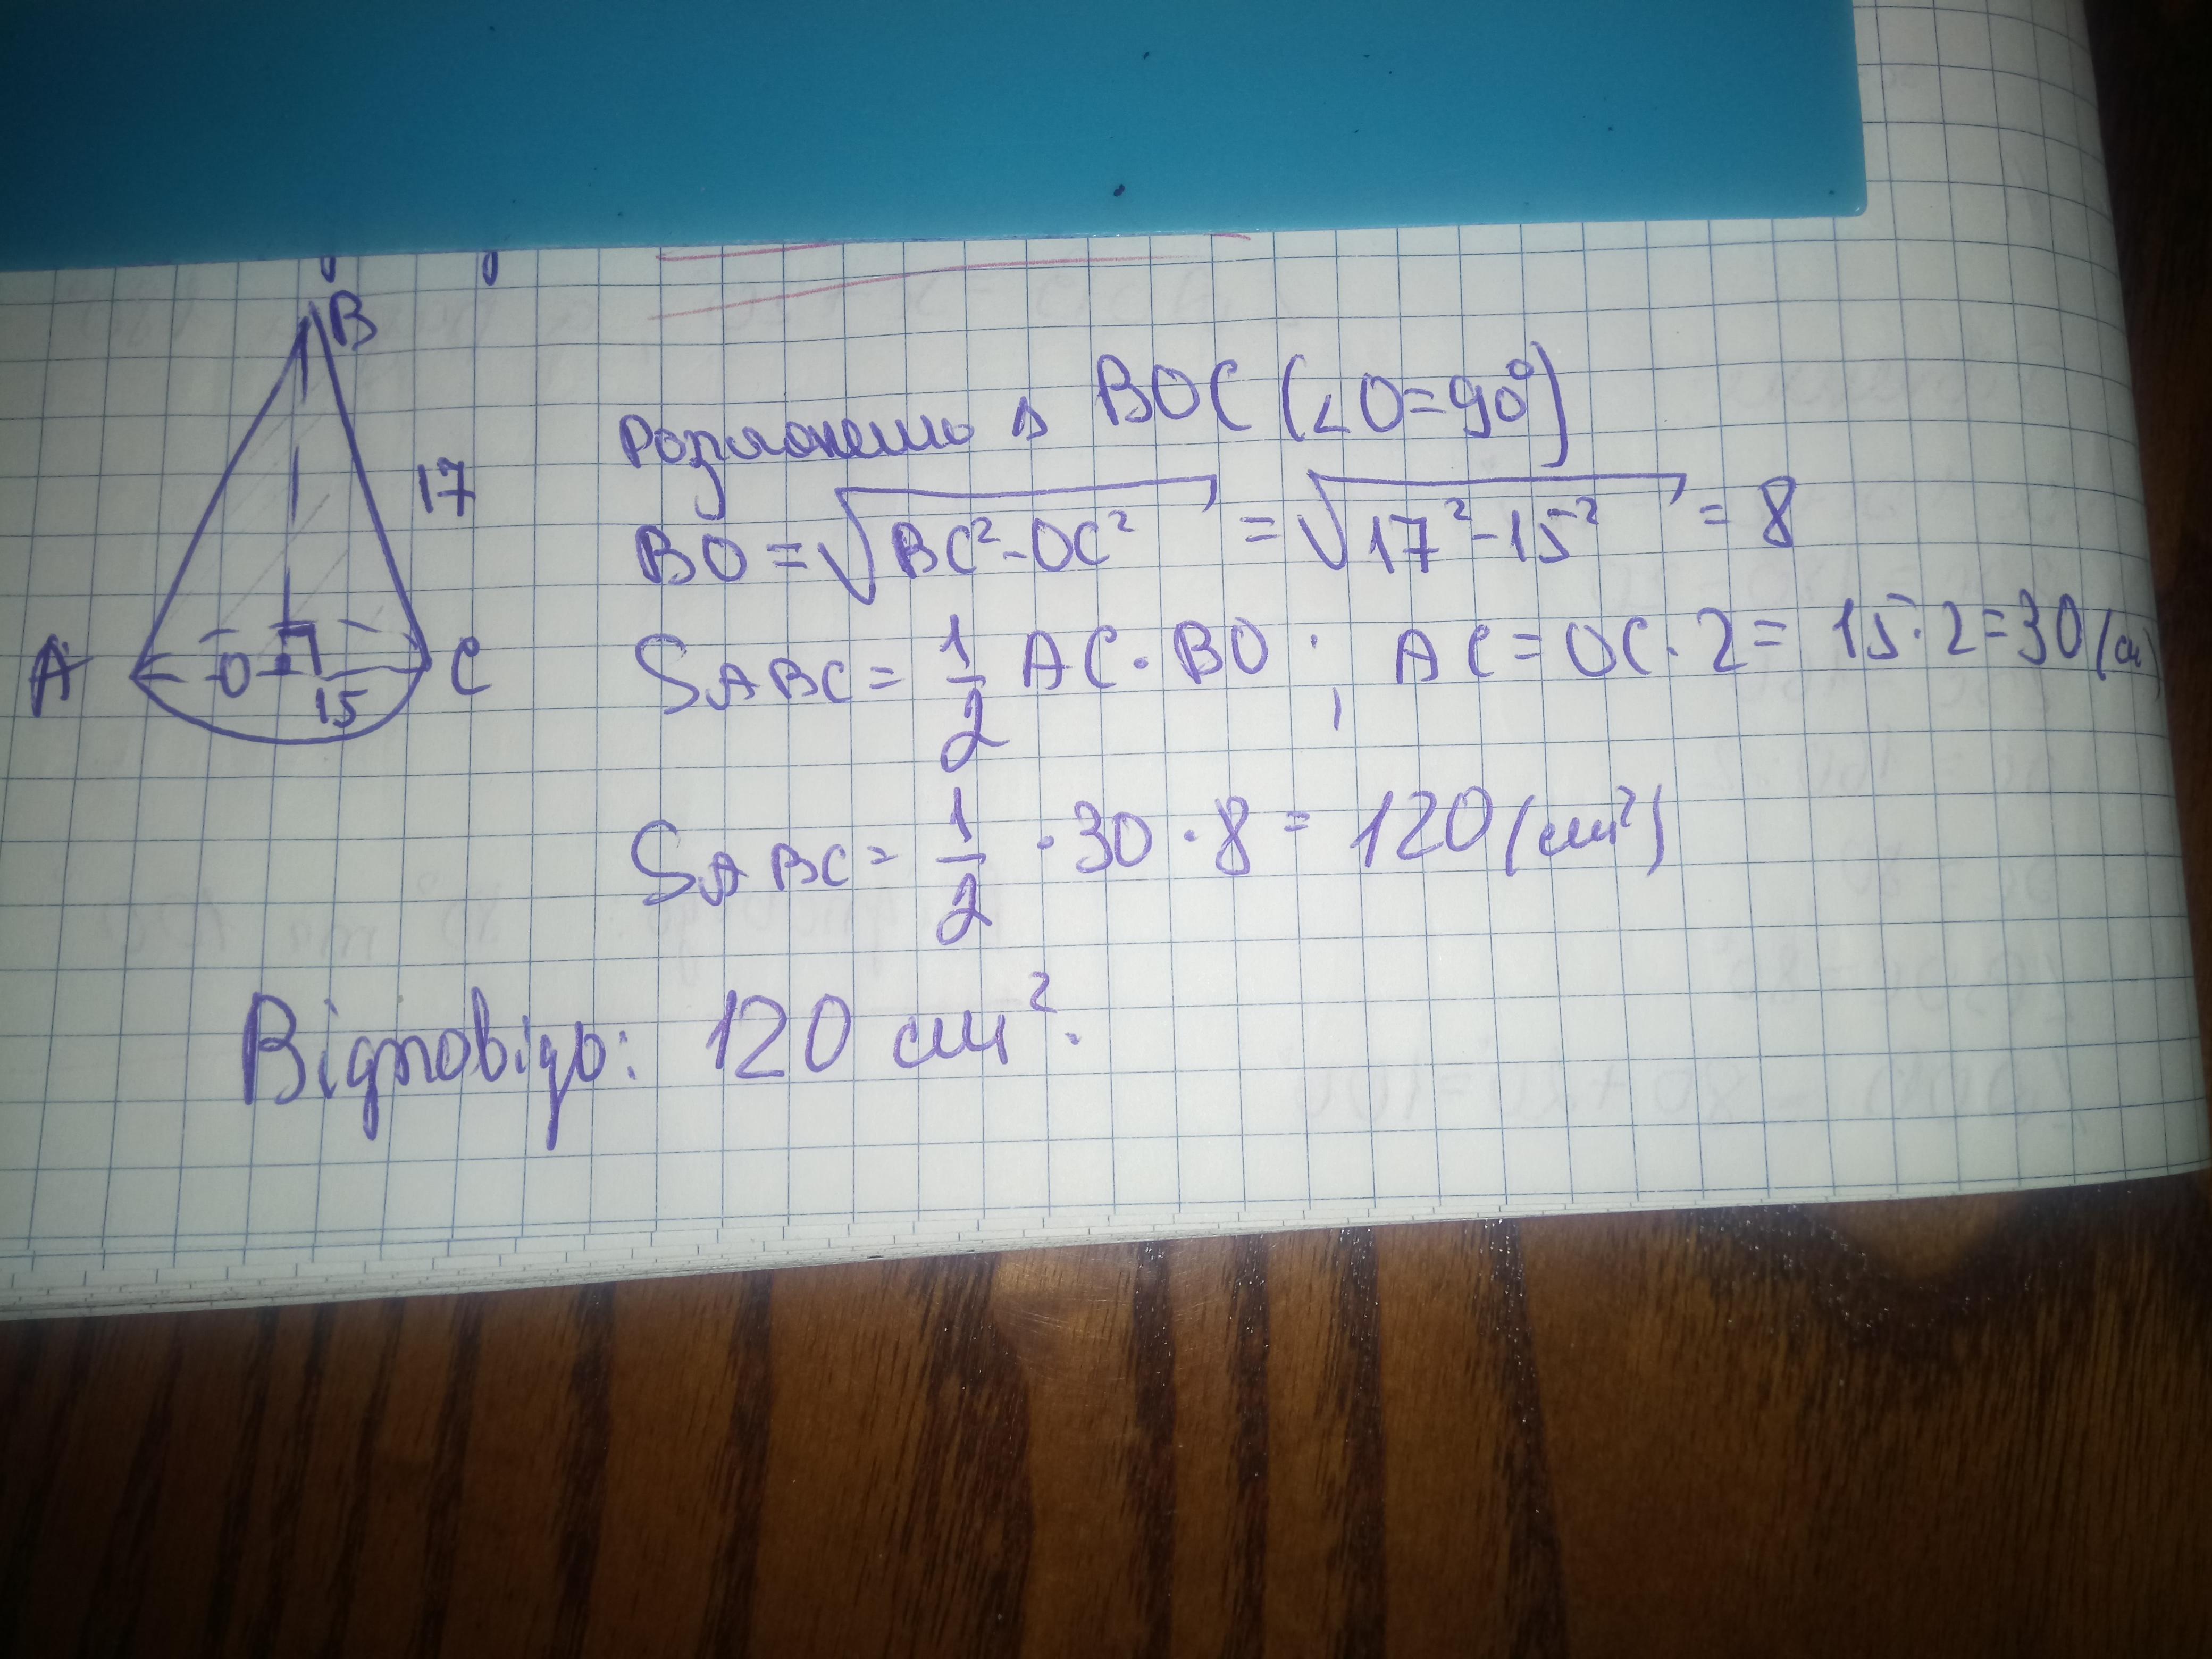 B
17
A
O
15
C
Розглянемо Δ BOC (∠O=90°)
BO = √BC²-OC² = √17²-15² = 8
SABC = 1/2 AC · BO ; AC = OC · 2 = 15 · 2 = 30 (см)
SABC = 1/2 · 30 · 8 = 120 (см²)
Відповідь: 120 см².